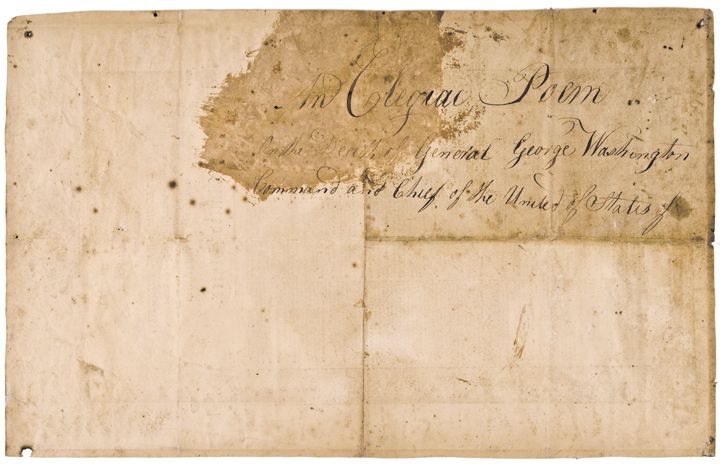 An Elegiac Poem
On the Death of General George Washington
Command and Chief of the United of States of